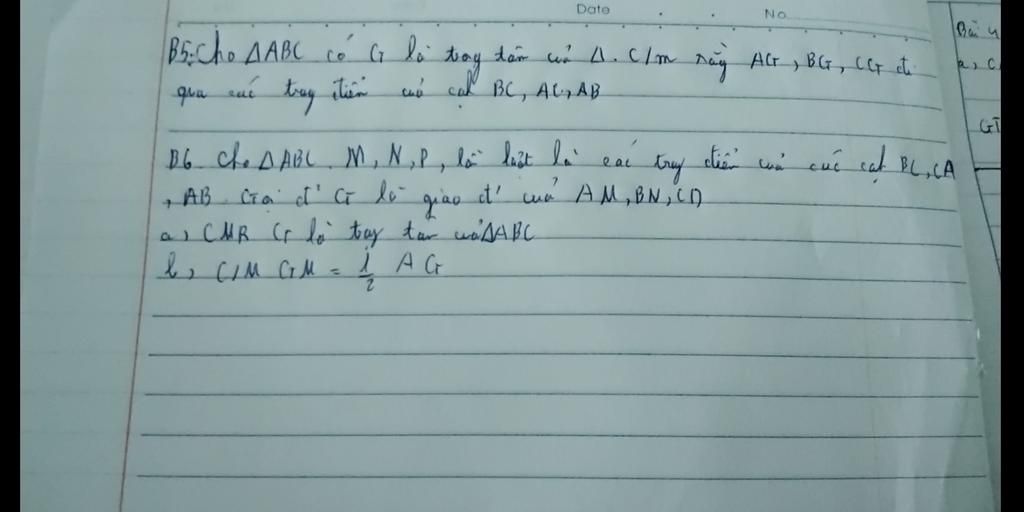 Date . . No
B5: Cho ΔABC có G là trọng tâm của Δ. C/m rằng AG, BG, CG đi
qua các trung điểm của cạnh BC, AC, AB
B6 Cho ΔABC M, N, P, lần lượt là các trung điểm của các cạnh BC, CA
, AB Gọi G là giao của AM, BN, CP
a, CMR G là trọng tâm của ΔABC
b, C/M GM = 1/2 AG
Bài 4
a, C
GT